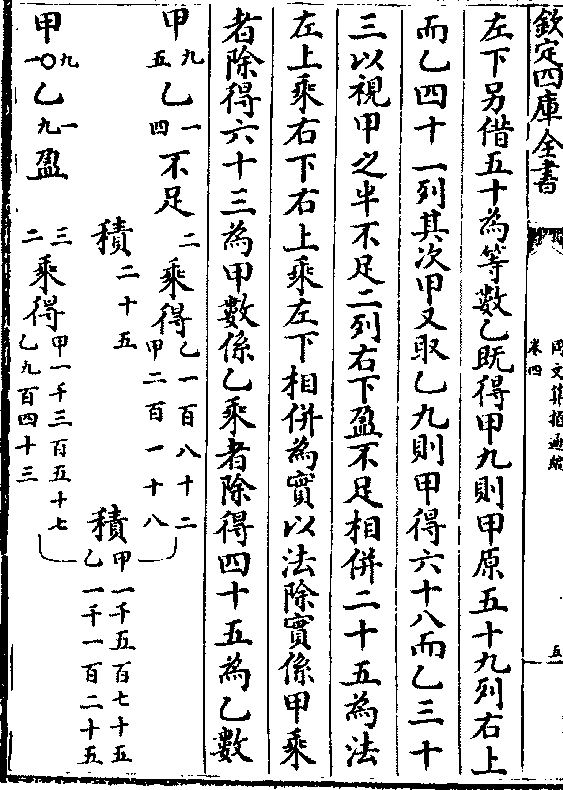 欽定四庫全書
同文算指通編
卷四
五
左下另借五十為等數乙既得甲九則甲原五十九列右上
而乙四十一列其次甲又取乙九則甲得六十八而乙三十
三以視甲之半不足二列右下盈不足相併二十五為法
左上乘右下右上乘左下相併為實以法除實係甲乘
者除得六十三為甲數係乙乘者除得四十五為乙數
甲九五乙一四不足二乘得乙一百八十二甲二百一十八
積二十五
積甲一千五百七十五乙一千一百二十五
甲九一〇乙一九盈三二乘得甲一千三百五十七乙九百四十三